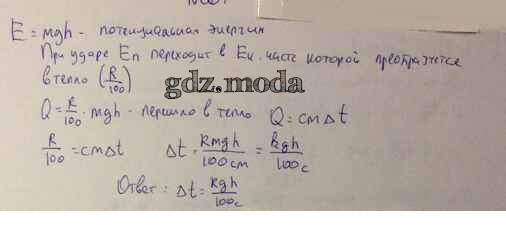 E = mgh - потенциальная энергия
При ударе Eп переходит в Eк. часть которой преобразуется
в тепло (R/100)
gdz.moda
Q = R/100 · mgh - перешло в тепло Q = cmΔt
R/100 = cmΔt Δt = Rmgh/100cm = kgh/100c
Ответ: Δt = kgh/100c